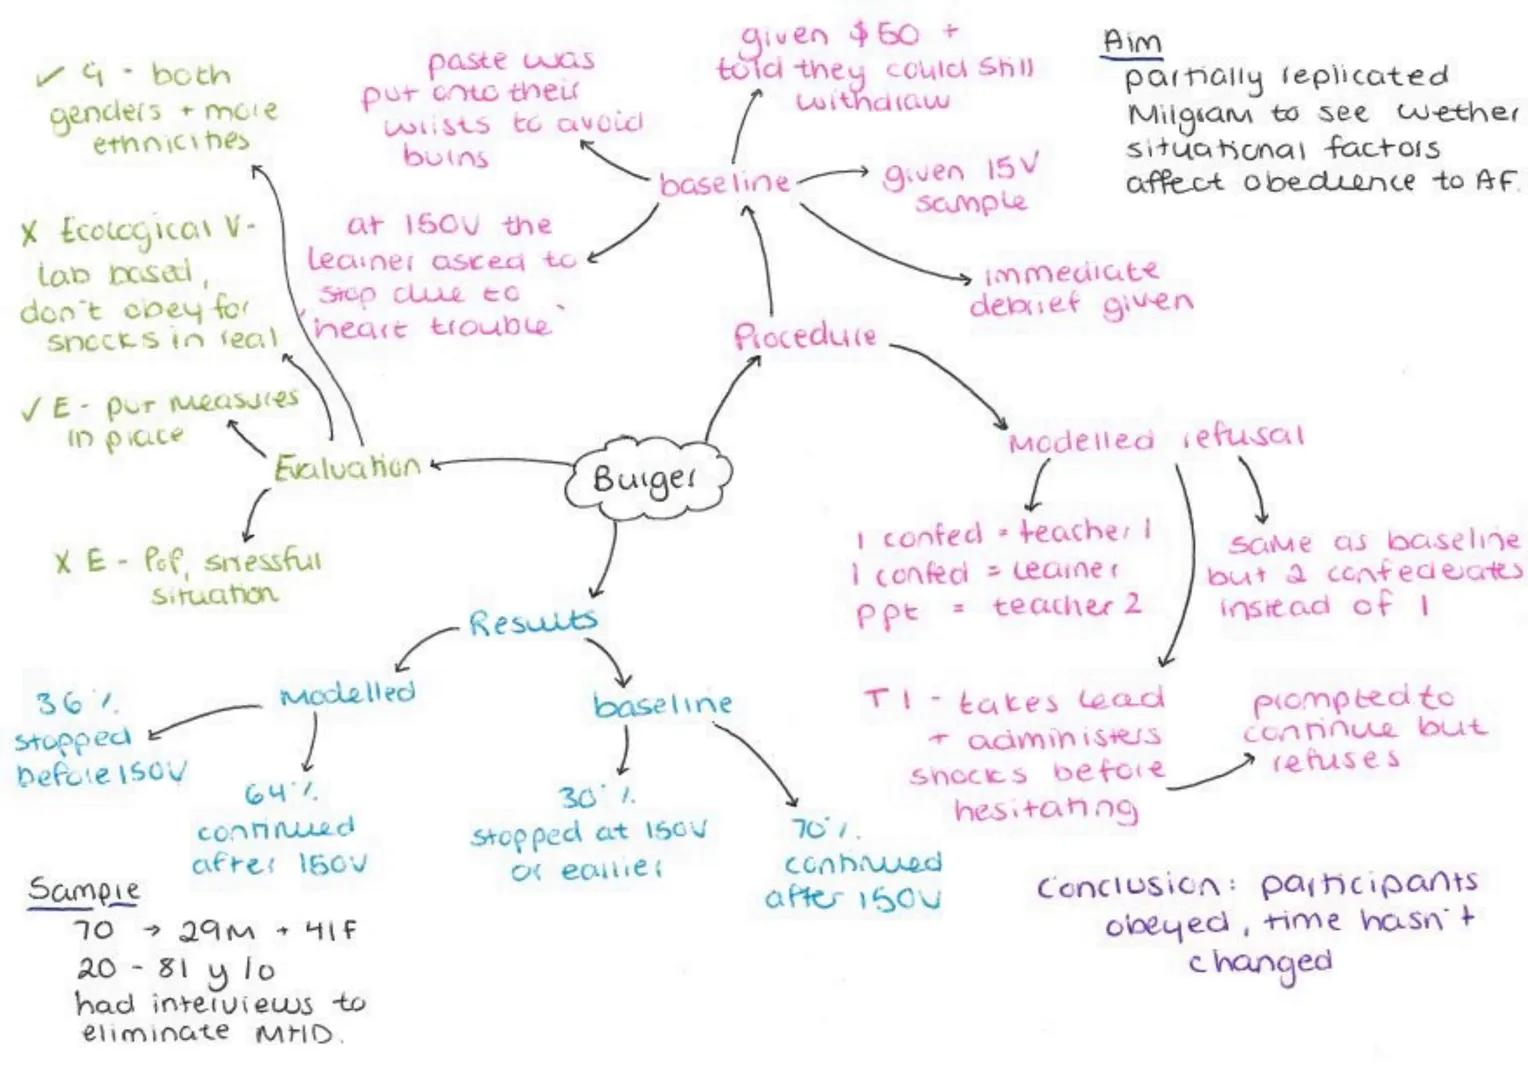 Aim
partially replicated
Milgram to see wether
situational factors
affect obedience to AF.
Burger
Procedure
baseline
given $50 +
told they could still
withdraw
given 15V
sample
immediate
debrief given
paste was
put onto their
wrists to avoid
burns
at 150V the
learner asked to
stop due to
'heart trouble'
Modelled refusal
1 confed = teacher 1
1 confed = learner
ppt = teacher 2
same as baseline
but 2 confederates
instead of 1
T1 - takes lead
+ administers
shocks before
hesitating
prompted to
continue but
refuses
Evaluation
✓ G - both
genders + more
ethnicities
X Ecological V -
lab based,
don't obey for
shocks in real
✓ E - put measures
in place
X E - PofP, stressful
situation
Results
Modelled
36%
stopped
before 150V
64%
continued
after 150V
baseline
30%
stopped at 150V
or earlier
70%
continued
after 150V
Sample
70 → 29M + 41F
20 - 81 y/o
had interviews to
eliminate MHD.
Conclusion: participants
obeyed, time hasn't
changed